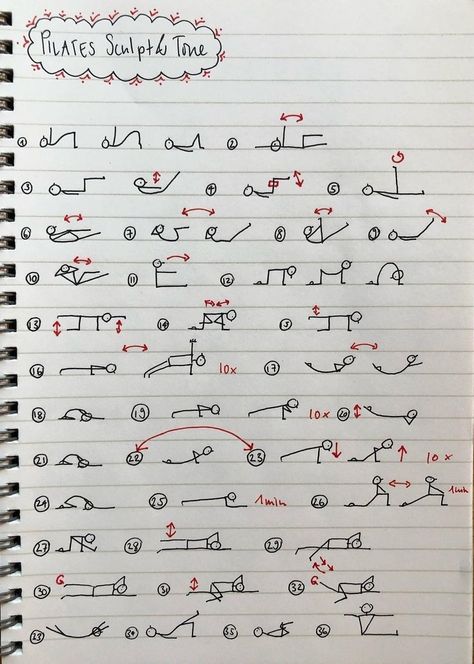 PILATES Sculpt & Tone
1 2
3 4 5
6 7 8 9
10 11 12
13 14 15
16 10x 17
18 19 10x 20
21 22 23 10x
24 25 1min 26 1min
27 28 29
30 31 32
33 34 35 36